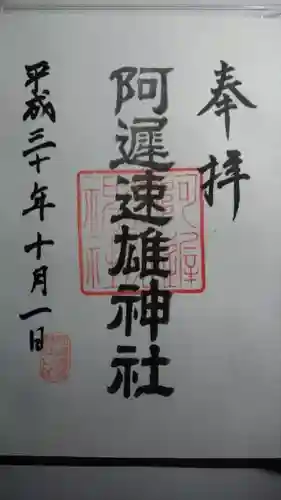 奉拝
阿遲速雄神社
平成三十年十月一日